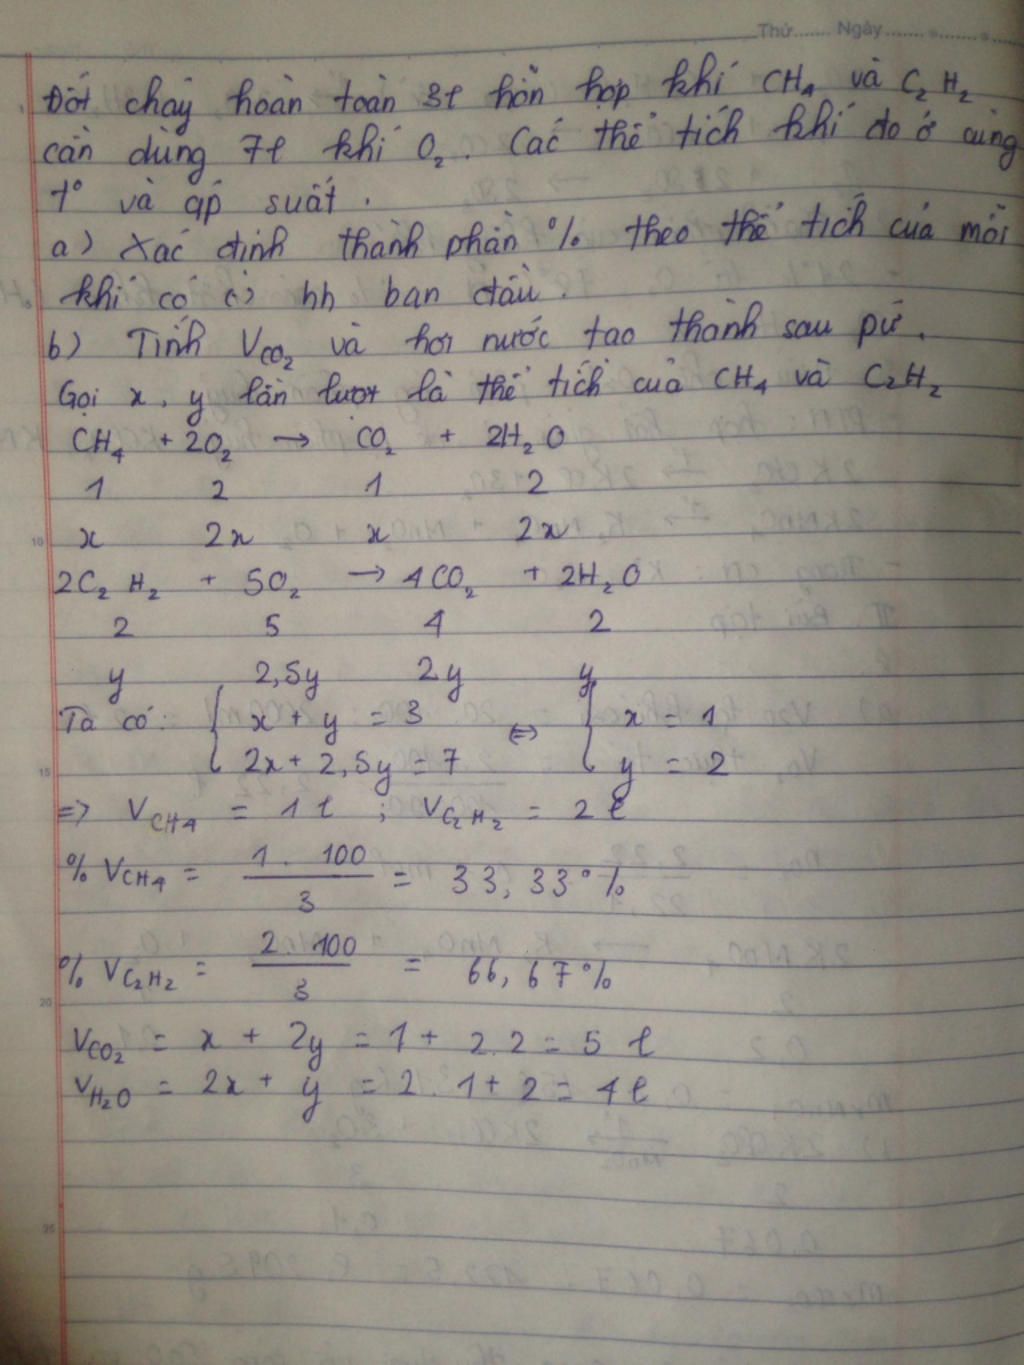 Thứ........ Ngày ........................
Đốt cháy hoàn toàn 3l hỗn hợp khí CH₄ và C₂H₂
cần dùng 7l khí O₂. Các thể tích khí đo ở cùng
t° và áp suất.
a) Xác định thành phần % theo thể tích của mỗi
khí có (-) hh ban đầu.
b) Tính V_CO₂ và hơi nước tạo thành sau pứ.
Gọi x, y lần lượt là thể tích của CH₄ và C₂H₂
CH₄ + 2O₂ → CO₂ + 2H₂O
1 2 1 2
10 x 2x x 2x
2C₂H₂ + 5O₂ → 4CO₂ + 2H₂O
2 5 4 2
y 2,5y 2y y
Ta có: { x + y = 3 ⇔ { x = 1
15 2x + 2,5y = 7 y = 2
=> V_CH₄ = 1 l ; V_C₂H₂ = 2 l
% V_CH₄ = 1. 100 / 3 = 33,33%
% V_C₂H₂ = 2. 100 / 3 = 66,67%
20
V_CO₂ = x + 2y = 1 + 2.2 = 5 l
V_H₂O = 2x + y = 2. 1 + 2 = 4 l
25